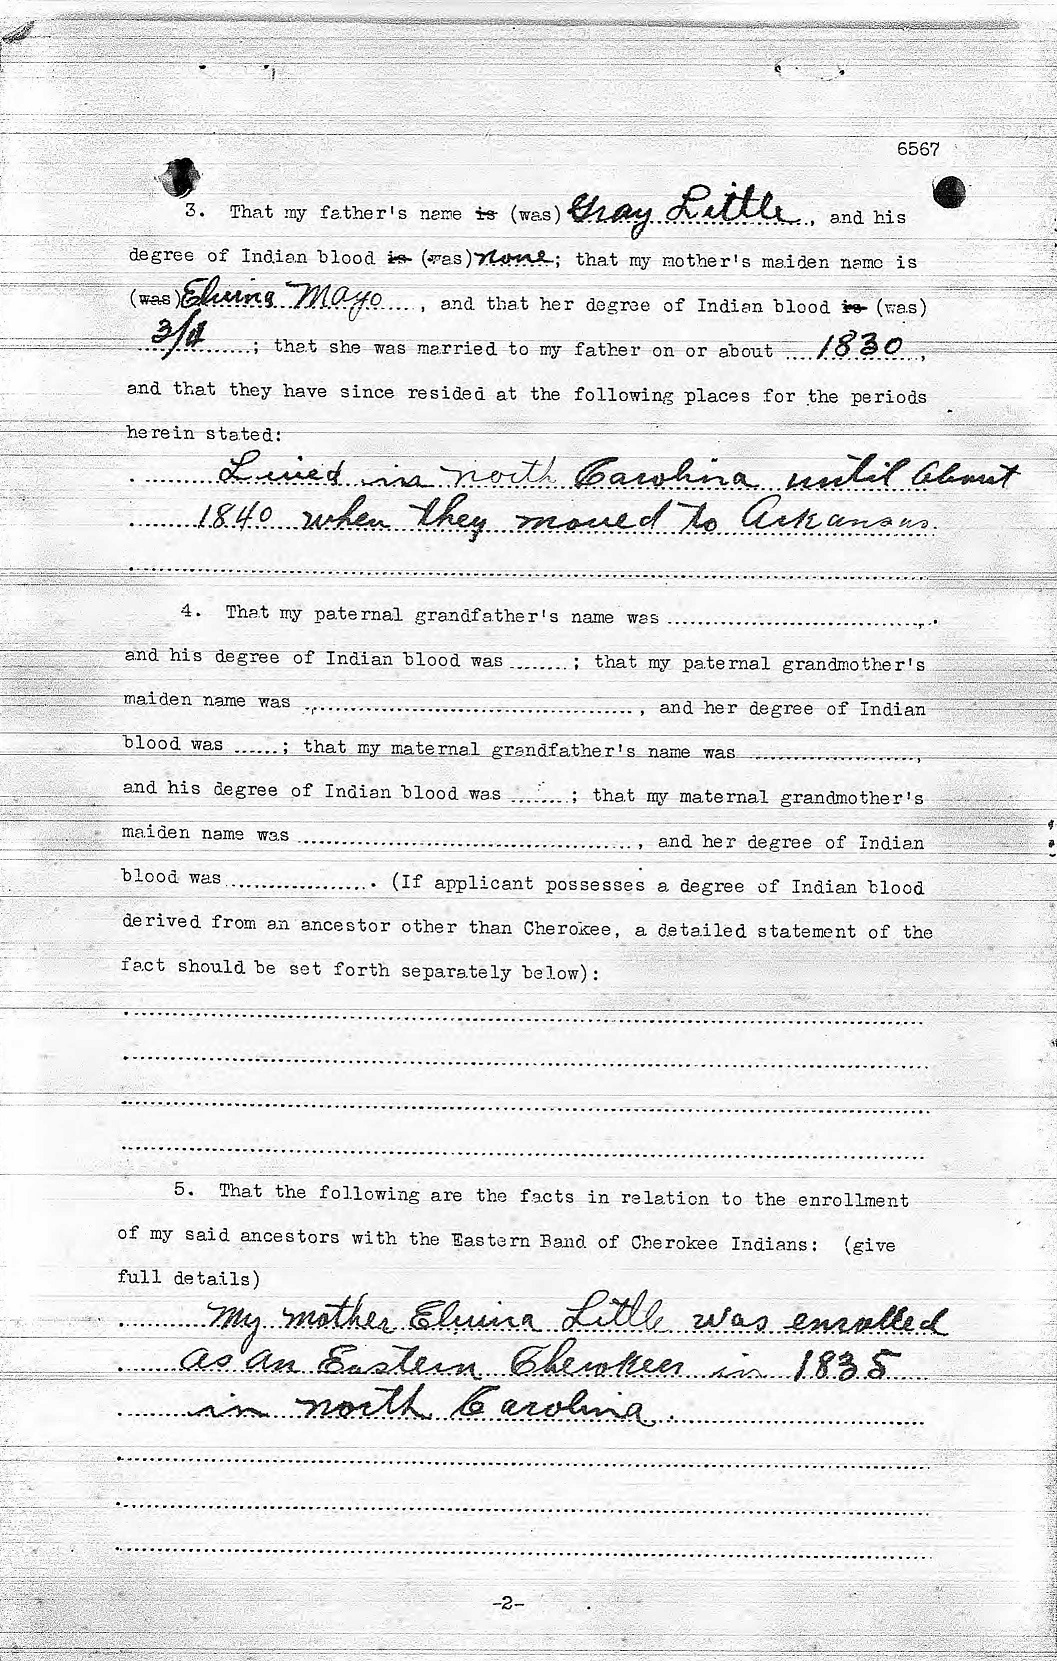 6567
3. That my father's name is (was) Gray Little, and his
degree of Indian blood is (was) none; that my mother's maiden name is
(was) Elvina Mayo ...., and that her degree of Indian blood is (was)
...3/4......; that she was married to my father on or about ....1830..,
and that they have since resided at the following places for the periods
herein stated:
Lived in North Carolina until about
1840 when they moved to Arkansas.
4. That my paternal grandfather's name was ..............................
and his degree of Indian blood was ........; that my paternal grandmother's
maiden name was ...................................., and her degree of Indian
blood was ......; that my maternal grandfather's name was ....................,
and his degree of Indian blood was ........; that my maternal grandmother's
maiden name was ...................................., and her degree of Indian
blood was .................. (If applicant possesses a degree of Indian blood
derived from an ancestor other than Cherokee, a detailed statement of the
fact should be set forth separately below):
5. That the following are the facts in relation to the enrollment
of my said ancestors with the Eastern Band of Cherokee Indians: (give
full details)
My mother Elvina Little was enrolled
as an Eastern Cherokee in 1835
in North Carolina.
-2-